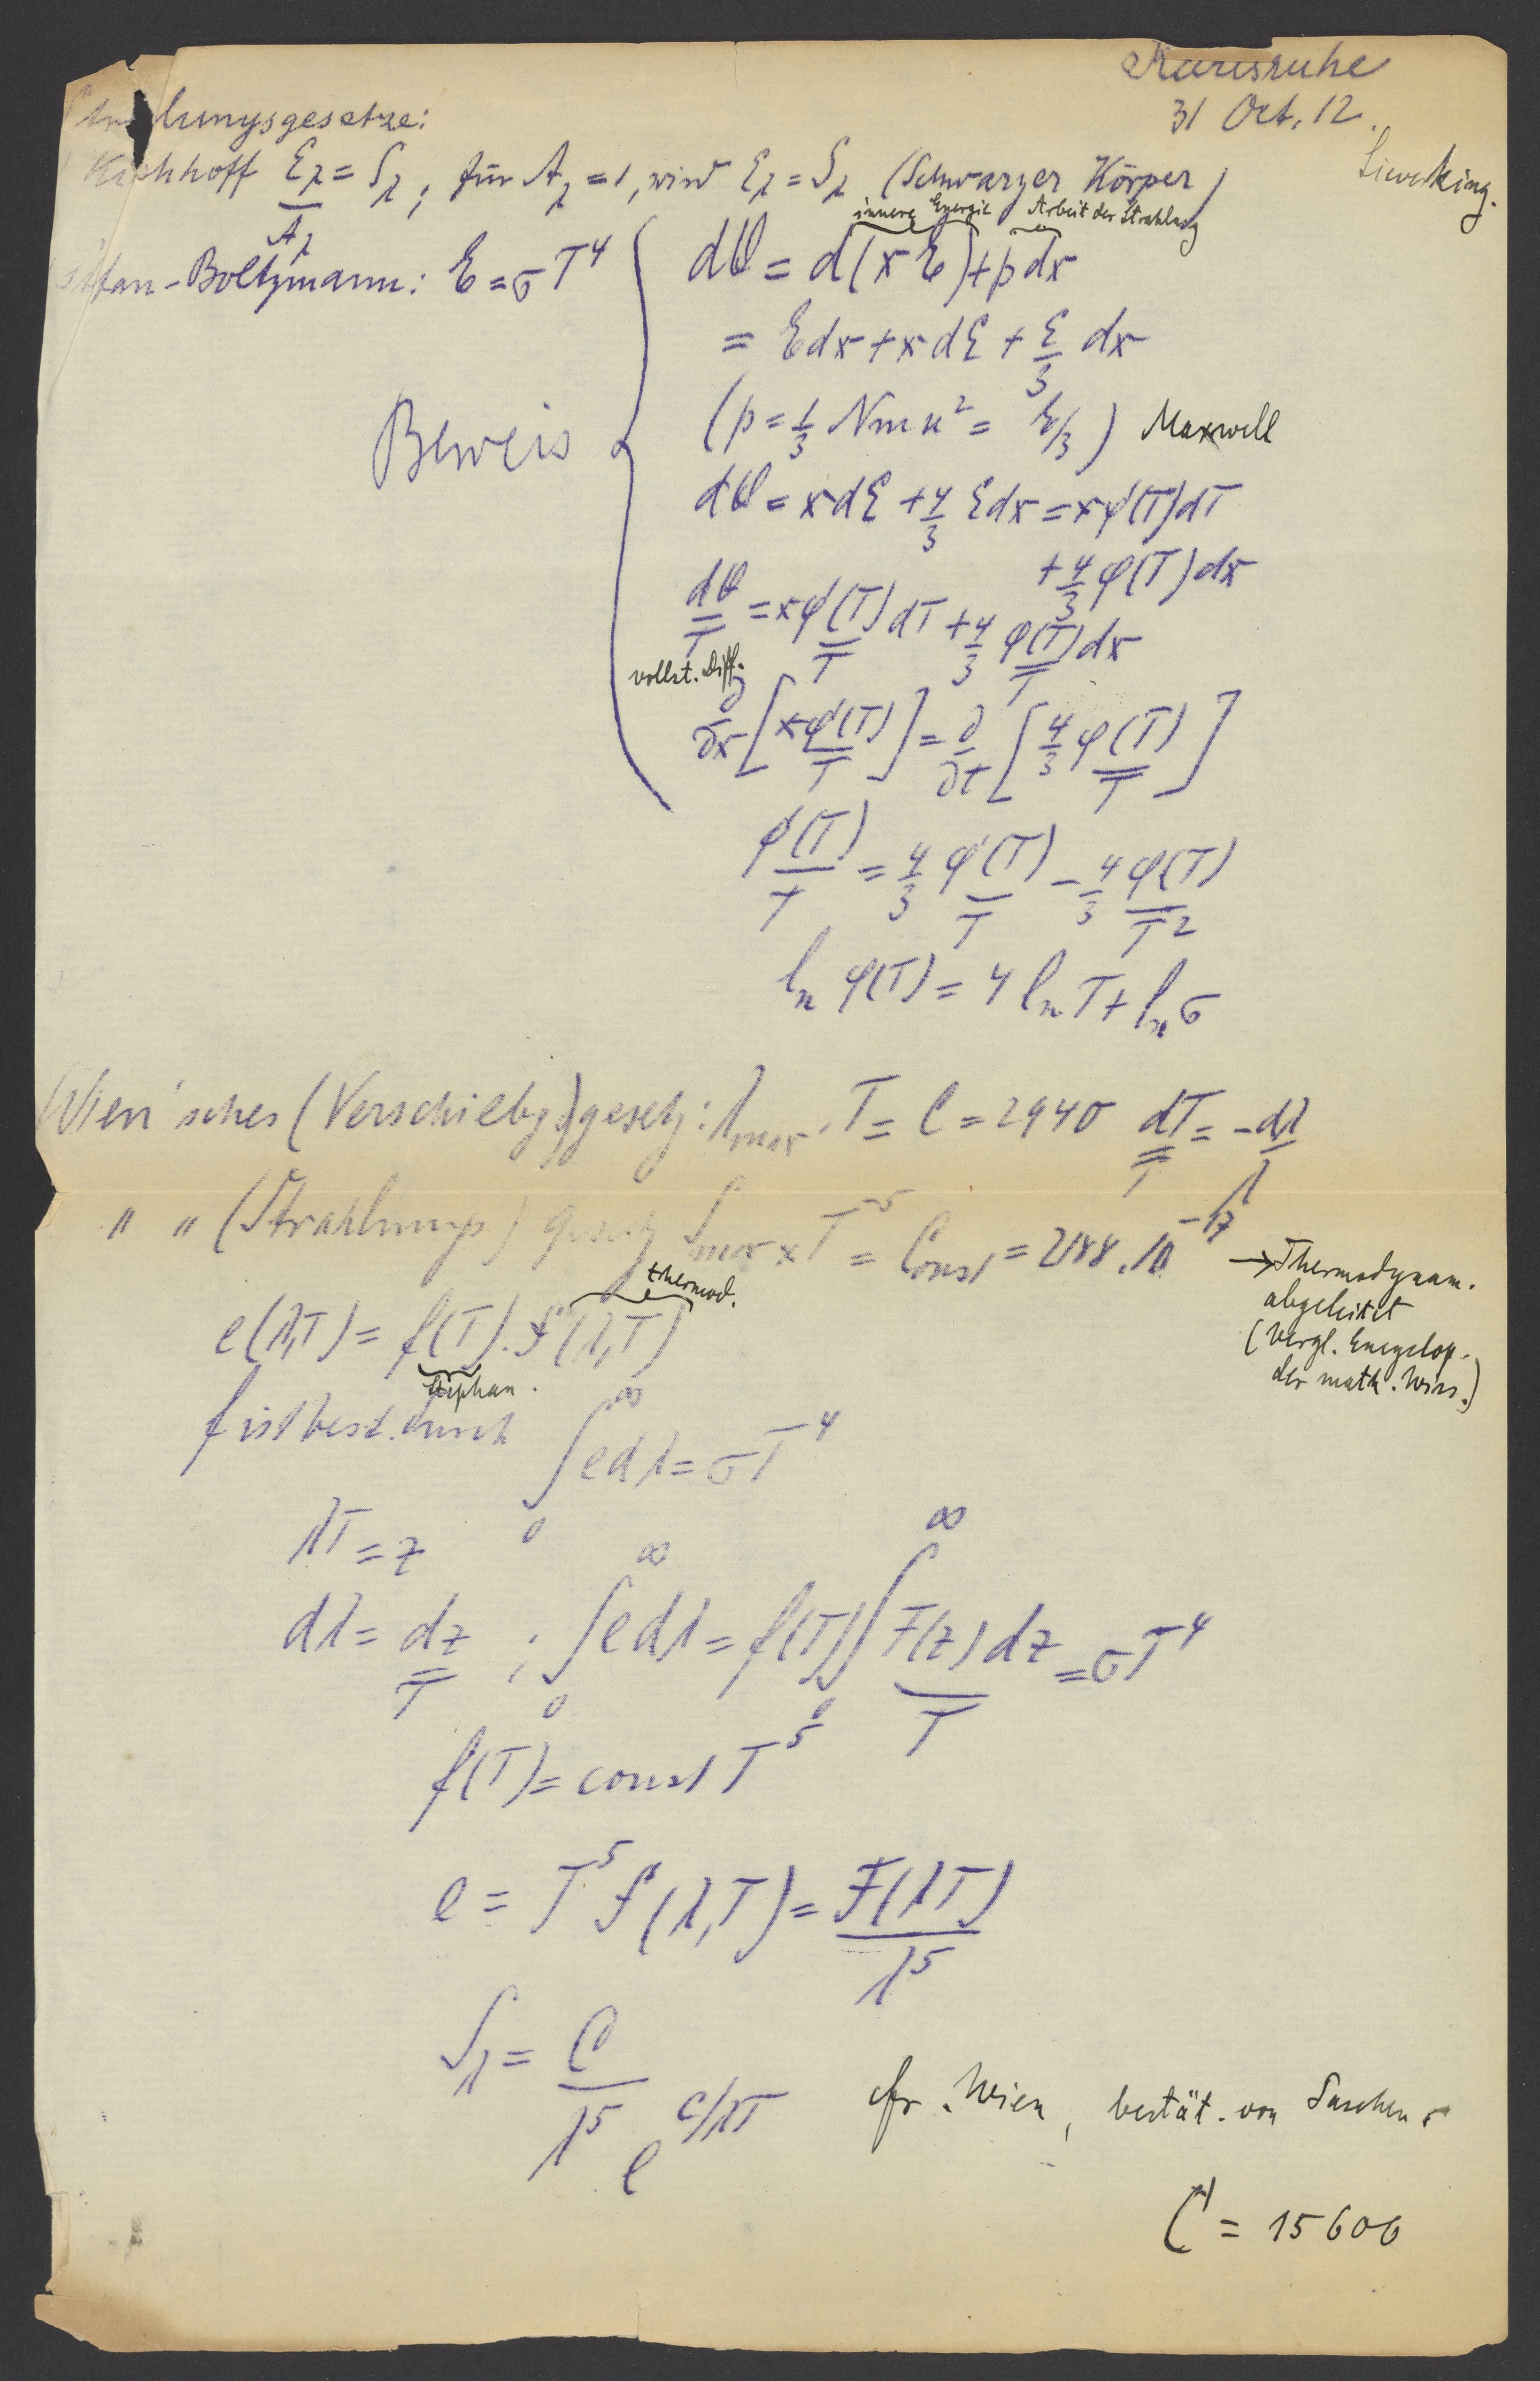 Karlsruhe
31 Oct. 12.
Sieveking.
Strahlungsgesetze:
Kirchhoff Eλ/Aλ = Sλ, für Aλ = 1, wird Eλ = Sλ (Schwarzer Körper)
innere Energie Arbeit der Strahlung
Stefan-Boltzmann: E = σT⁴ dQ = d(xE) + pdx
= Edx + xdE + E/3 dx
Beweis (p = 1/3 Nmu² = E/3) Maxwell
dQ = xdE + 4/3 Edx = xφ'(T)dT
+ 4/3 φ(T)dx
dQ/T = xφ'(T)/T dT + 4/3 φ(T)/T dx
vollst. Diff.
∂/∂x [xφ'(T)/T] = ∂/∂t [4/3 φ(T)/T]
φ'(T)/T = 4/3 φ'(T)/T − 4/3 φ(T)/T²
ln φ(T) = 4 ln T + ln σ
Wien'sches (Verschiebg)gesetz: λmax. T = C = 2940 dT/T = −dλ/λ
" " (Strahlungs) gesetz Smax × T⁻⁵ = Const = 2188.10⁻¹⁷
→ Thermodynam.
abgeleitet
(Vergl. Encyclop.
der math. Wiss.)
thermod.
e(λ,T) = f(T). F(λ,T)
Stephan.
f ist best. durch ∫₀^∞ edλ = σT⁴
λT = z
dλ = dz/T ; ∫₀^∞ edλ = f(T) ∫₀^∞ F(z)/T dz = σT⁴
f(T) = const T⁵
e = T⁵ F(λ,T) = F(λT)/λ⁵
Sλ = C/λ⁵ e^c/λT cfr. Wien, bestät. von Paschen
C = 15600